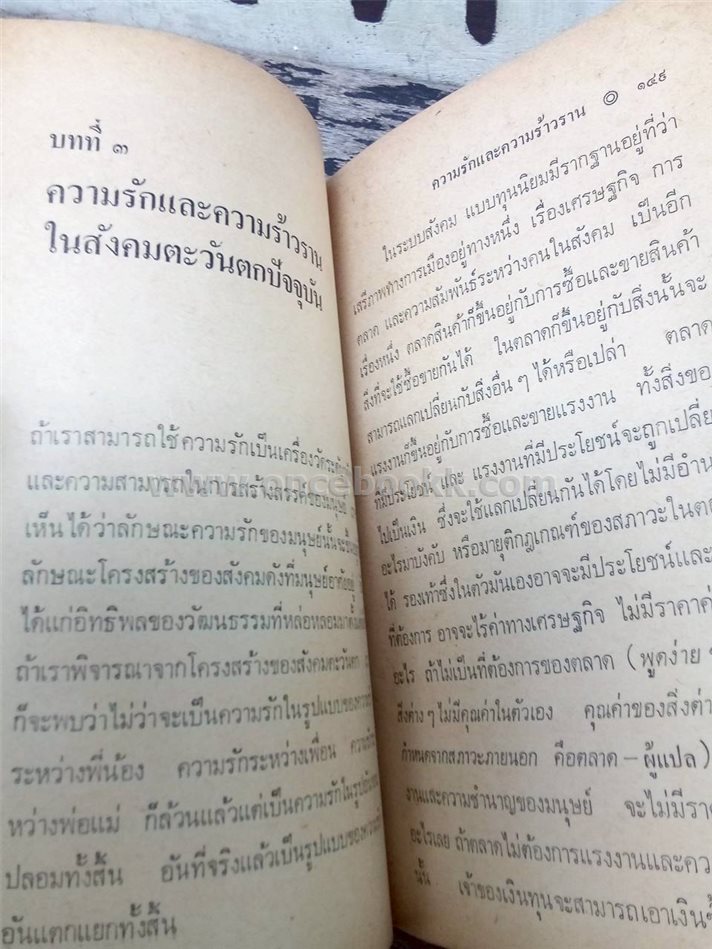 บทที่ ๓
ความรักและความร้าวราน
ในสังคมตะวันตกปัจจุบัน
ถ้าเราสามารถใช้ความรักเป็นเครื่องวัด
และความสามารถในการสร้างสรรค์ของมนุษย์
เห็นได้ว่าลักษณะความรักของมนุษย์นั้นจะ
ลักษณะโครงสร้างของสังคมดังที่มนุษย์
ได้แก่อิทธิพลของวัฒนธรรมที่หล่อหลอม
ถ้าเราพิจารณาจากโครงสร้างของสังคมตะวันตก
ก็จะพบว่าไม่ว่าจะเป็นความรักในรูปแบบของ
ระหว่างพี่น้อง ความรักระหว่างเพื่อน ความรัก
หว่างพ่อแม่ ก็ล้วนแล้วแต่เป็นความรักในรูป
ปลอมทั้งสิ้น อันที่จริงแล้วเป็นรูปแบบของ
อันแตกแยกทั้งสิ้น
ความรักและความร้าวราน ๑๔๙
ในระบบสังคม แบบทุนนิยมมีรากฐานอยู่ที่ว่า
เสรีภาพทางการเมืองอยู่ทางหนึ่ง เรื่องเศรษฐกิจ การ
ตลาด และความสัมพันธ์ระหว่างคนในสังคม เป็นอีก
เรื่องหนึ่ง ตลาดสินค้าก็ขึ้นอยู่กับการซื้อและขายสินค้า
สิ่งที่จะใช้ซื้อขายกันได้ ในตลาดก็ขึ้นอยู่กับสิ่งนั้นจะ
สามารถแลกเปลี่ยนกับสิ่งอื่น ๆ ได้หรือเปล่า ตลาด
แรงงานก็ขึ้นอยู่กับการซื้อและขายแรงงาน ทั้งสิ่งของ
ที่มีประโยชน์ และ แรงงานที่มีประโยชน์จะถูกเปลี่ย
ไปเป็นเงิน ซึ่งจะใช้แลกเปลี่ยนกันได้โดยไม่มีอำน
อะไรมาบังคับ หรือมายุติกฎเกณฑ์ของสภาวะในตล
ได้ รองเท้าซึ่งในตัวมันเองอาจจะมีประโยชน์และ
ที่ต้องการ อาจจะไร้ค่าทางเศรษฐกิจ ไม่มีราคาค่
อะไร ถ้าไม่เป็นที่ต้องการของตลาด (พูดง่าย ๆ
สิ่งต่าง ๆ ไม่มีคุณค่าในตัวเอง คุณค่าของสิ่งต่า
กำหนดจากสภาวะภายนอก คือตลาด – ผู้แปล)
งานและความชำนาญของมนุษย์ จะไม่มีรา
อะไรเลย ถ้าตลาดไม่ต้องการแรงงานและคว
นั้น เจ้าของเงินทุนจะสามารถเอาเงินซื้
www.oncebookk.com